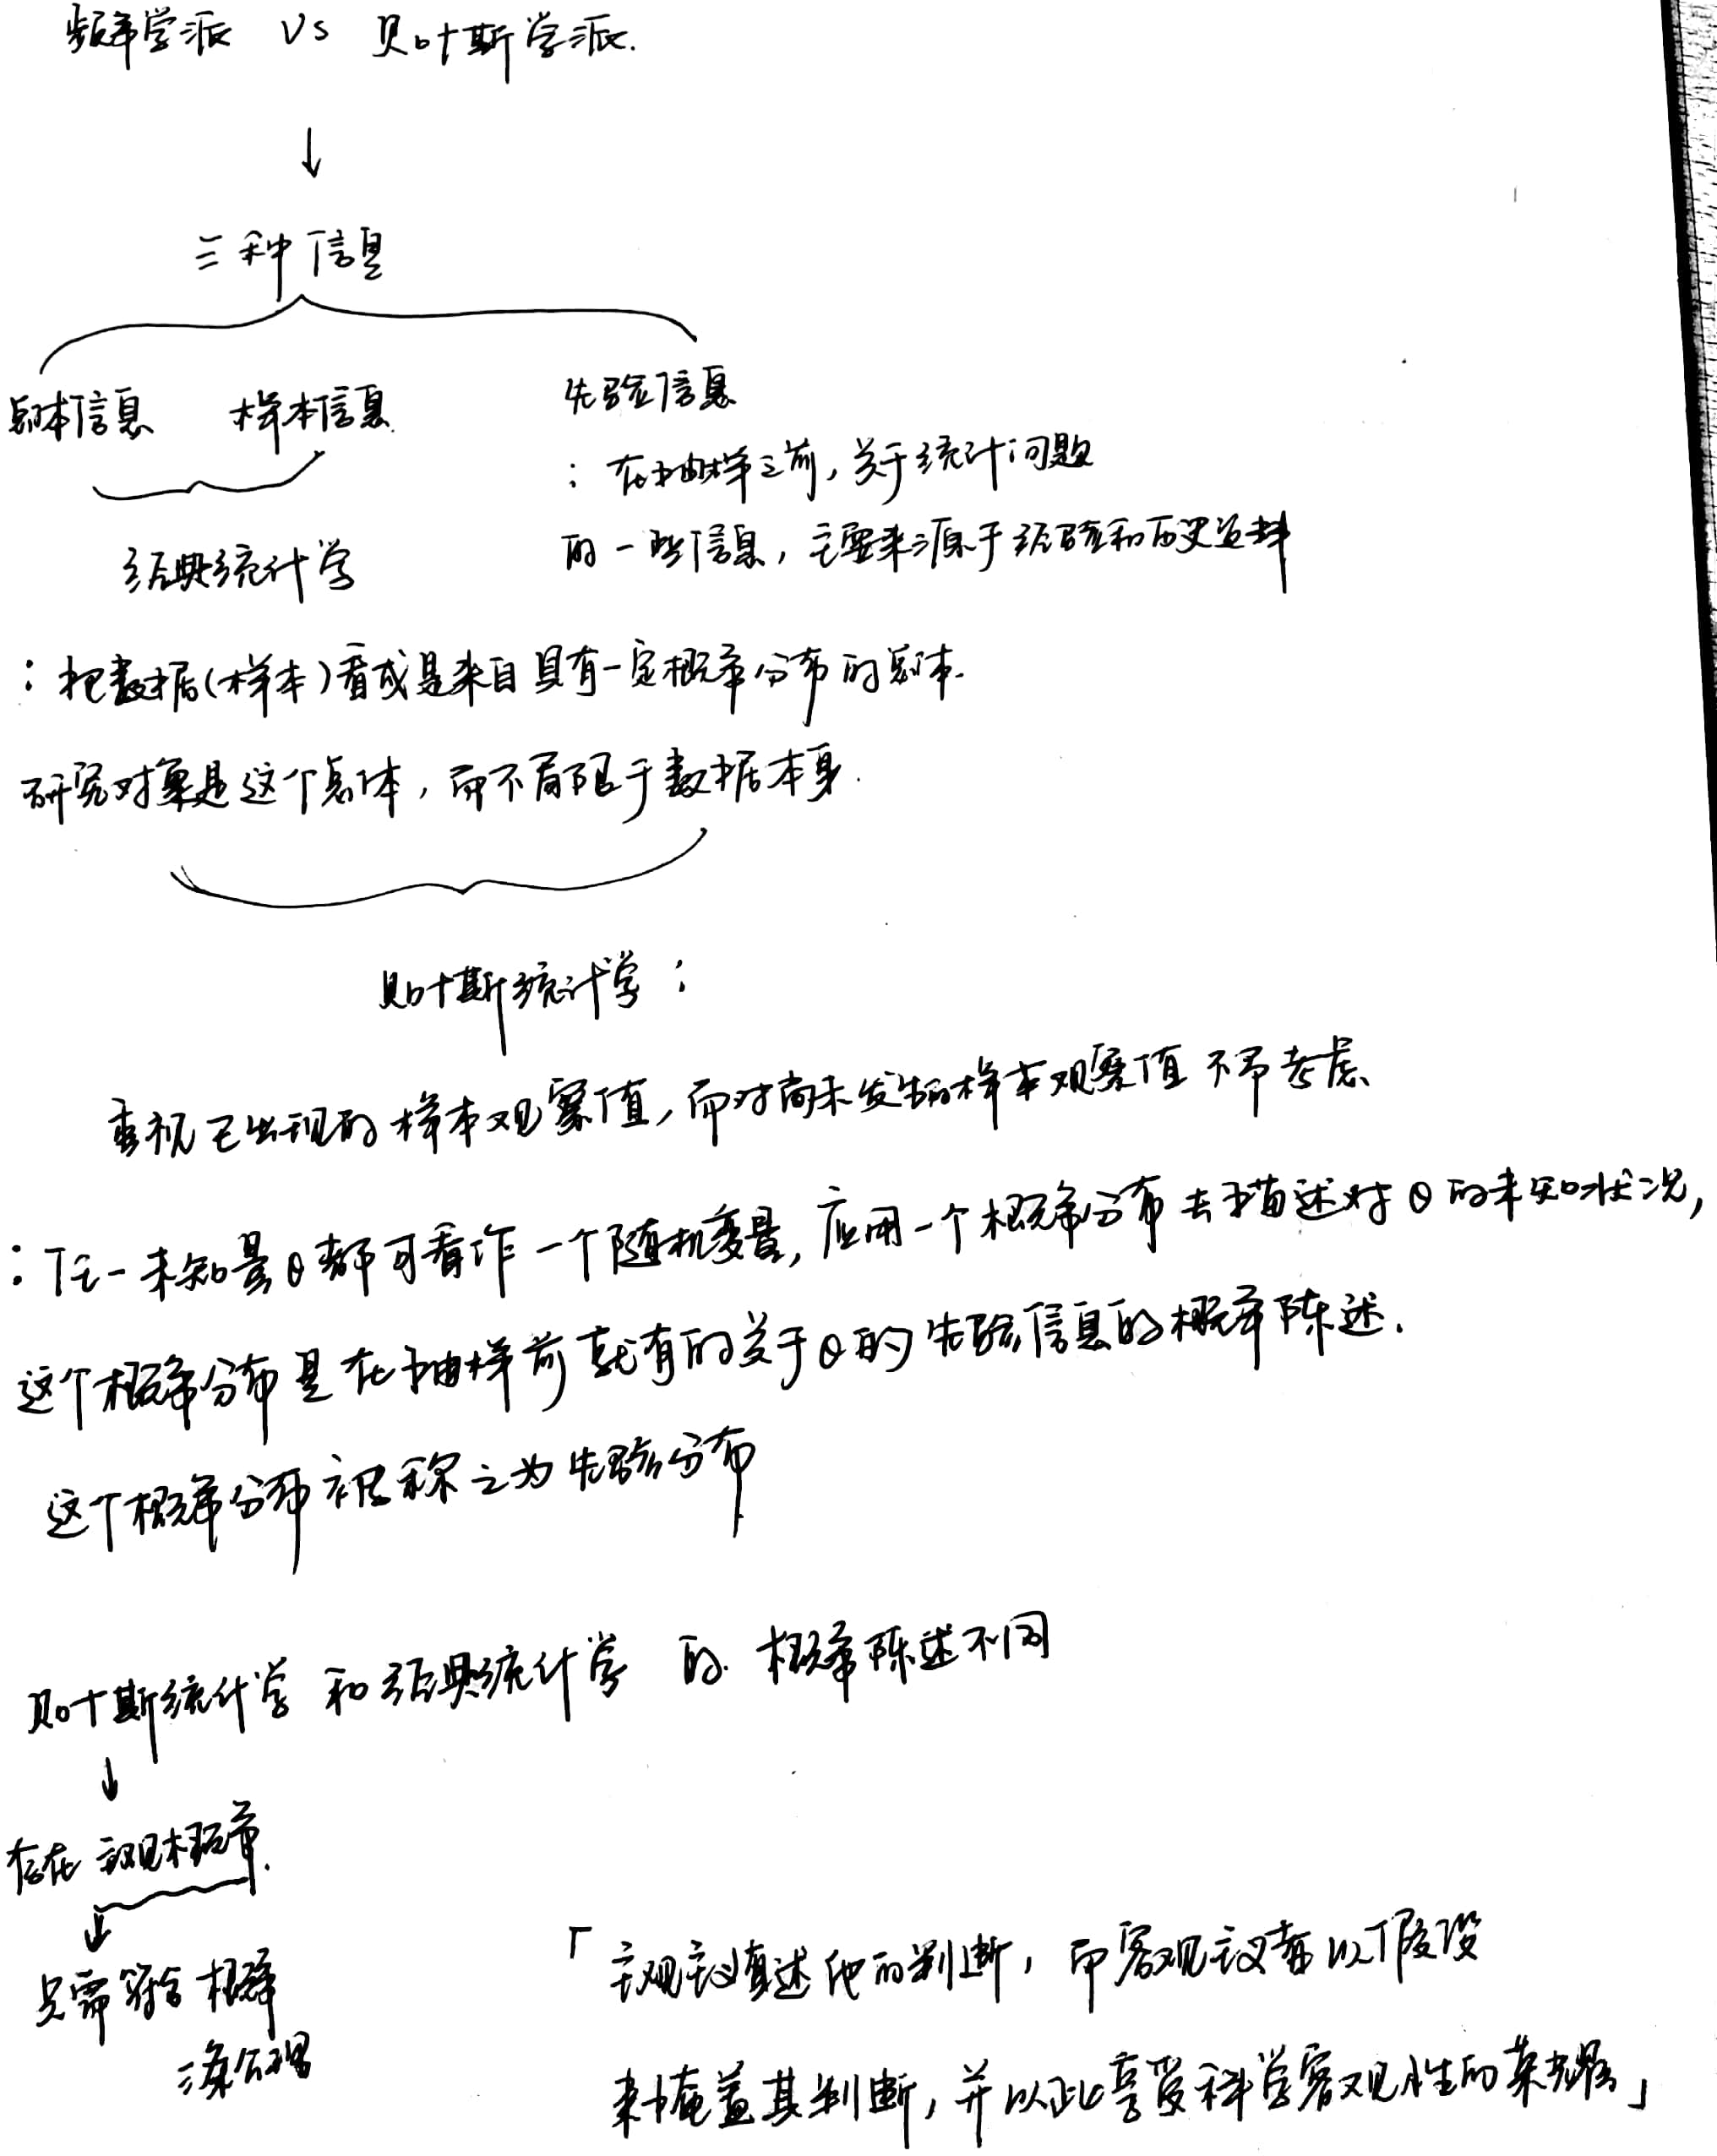 频率学派 VS 贝叶斯学派.
↓
三种信息
总体信息 样本信息. 先验信息
: 在抽样之前, 关于统计问题
的一些信息, 主要来源于经验和历史资料
经典统计学
: 把数据(样本)看成是来自具有一定概率分布的总体.
研究对象是这个总体, 而不局限于数据本身.
贝叶斯统计学:
重视已出现的样本观察值, 而对尚未发生的样本观察值不予考虑
: 任一未知量θ都可看作一个随机变量, 应用一个概率分布去描述对θ的未知状况,
这个概率分布是在抽样前就有的关于θ的先验信息的概率陈述.
这个概率分布被称之为先验分布
贝叶斯统计学和经典统计学的概率陈述不同
↓
存在主观概率.
↓
只需符合概率
三条公理
「主观主义者直述他的判断, 而客观主义者以假设
来掩盖其判断, 并以此享受科学客观性的荣耀」